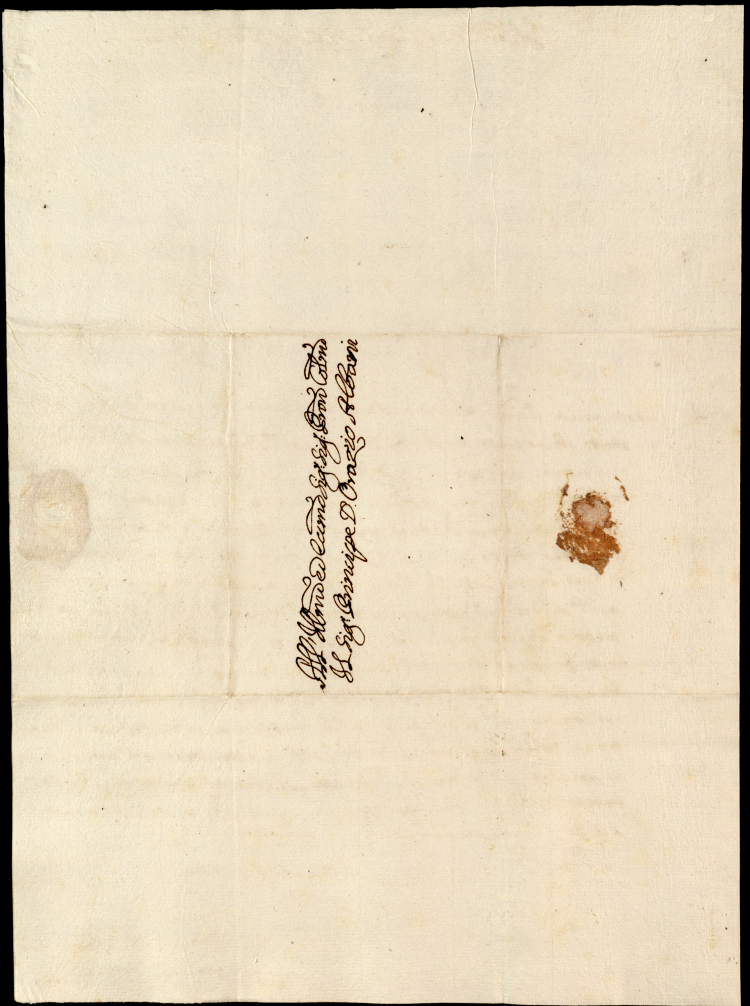 All' Illmo et Eccmo Sigr. Sigr. Pron Colmo
Il Sigr. Principe D. Orazio Albani